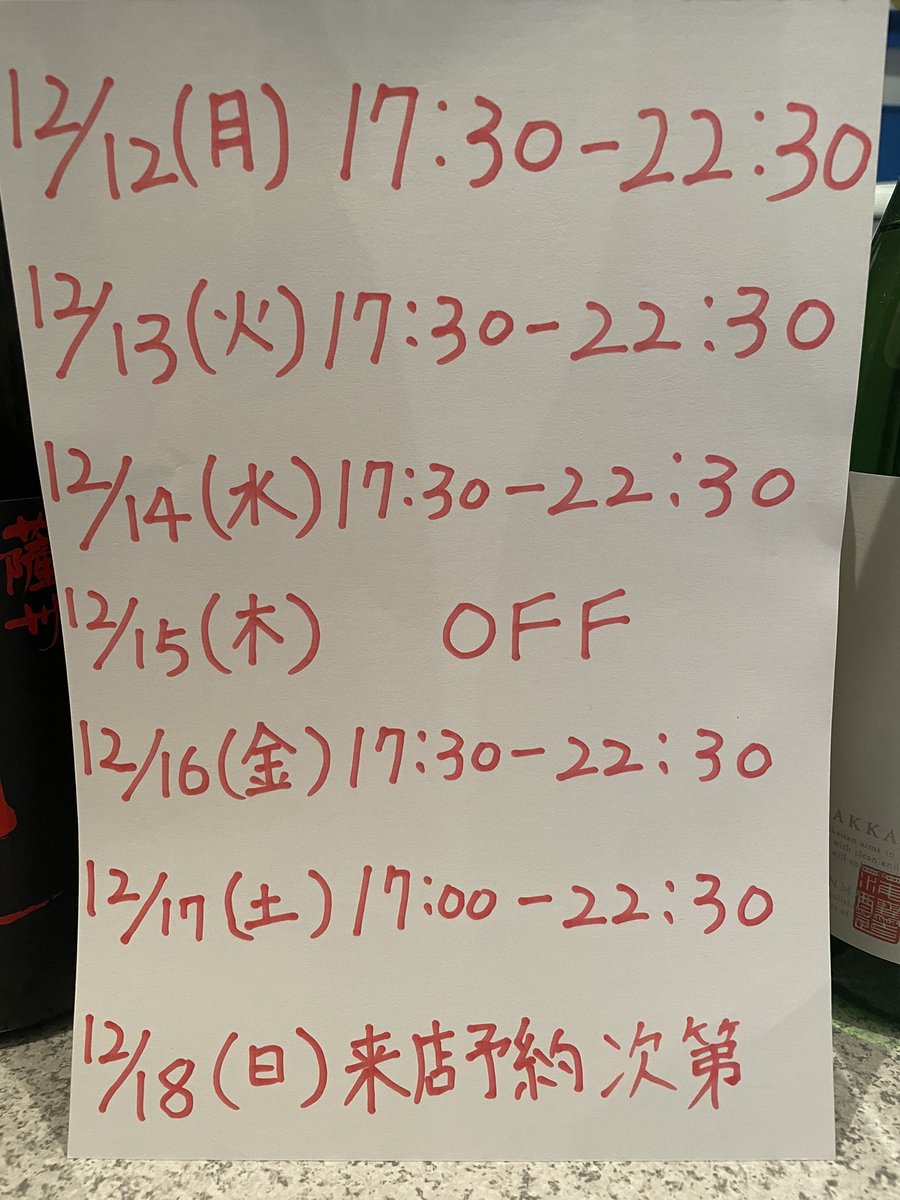 12/12(月) 17:30-22:30
12/13(火) 17:30-22:30
12/14(水) 17:30-22:30
12/15(木) OFF
12/16(金) 17:30-22:30
12/17(土) 17:00-22:30
12/18(日) 来店予約次第
薩
州
AKKA